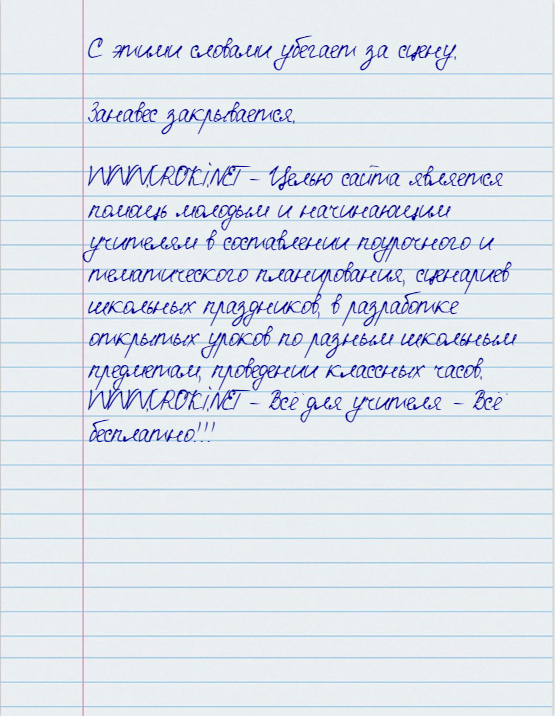 С этими словами убегает за сцену.
Занавес закрывается.
WWW.UROKI.NET – Целью сайта является
помощь молодым и начинающим
учителям в составлении поурочного и
тематического планирования, сценариев
школьных праздников, в разработке
открытых уроков по разным школьным
предметам, проведении классных часов.
WWW.UROKI.NET – Всё для учителя – Всё
бесплатно!!!